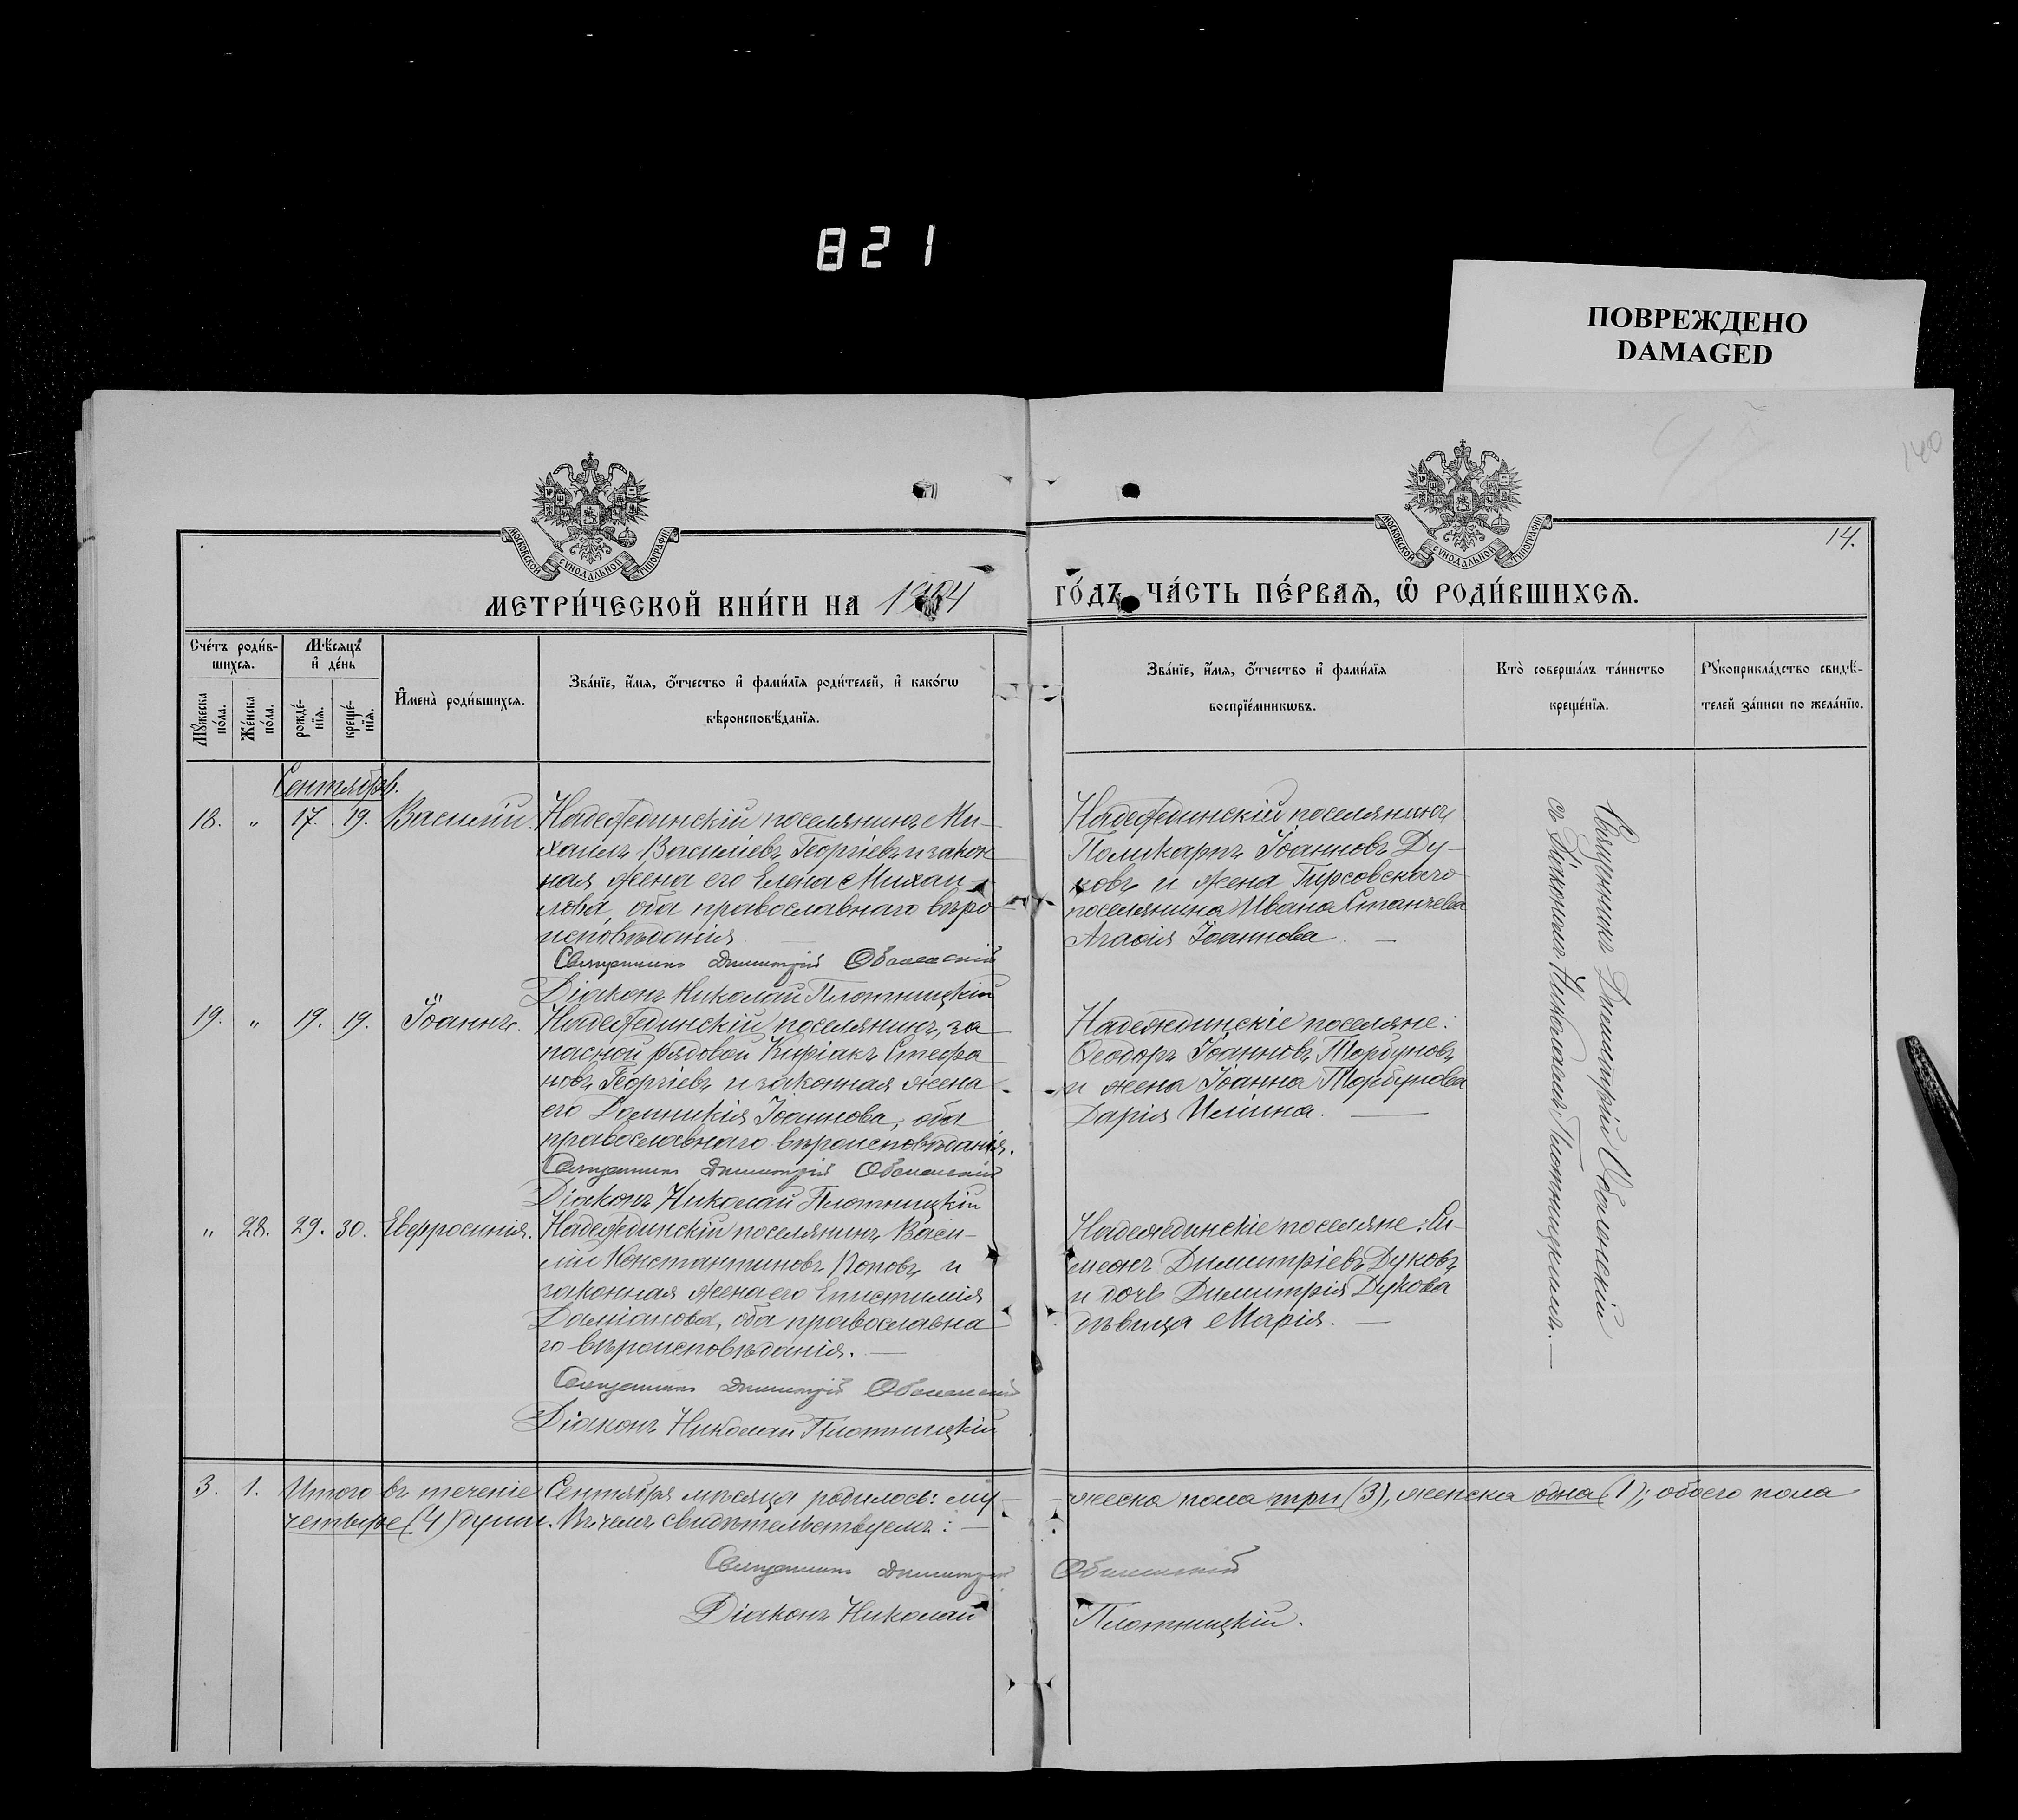 821
ПОВРЕЖДЕНО
DAMAGED
140
14.
МОСКОВСКОЙ СѴНОДАЛЬНОЙ ТИПОГРАФІИ
МОСКОВСКОЙ СѴНОДАЛЬНОЙ ТИПОГРАФІИ
МЕТРИ́ЧЕСКОЙ КНИ́ГИ НА 1904 ГО́ДЪ, ЧА́СТЬ ПЕ́РВАѦ, Ѡ РОДИ́ВШИХСѦ.
Сче́тъ роди́в-
шихсѧ.
Мꙋ́жеска по́ла.
Же́нска по́ла.
Мѣ́сѧцъ
и҆ де́нь
рожде́-
нїѧ.
креще́-
нїѧ.
И҆мена̀ роди́вшихсѧ.
Зва́нїе, и҆́мѧ, ѻ҆́тчество и҆ фами́лїѧ роди́телей, и҆ како́гѡ
вѣроисповѣ́данїѧ.
Зва́нїе, и҆́мѧ, ѻ҆́тчество и҆ фами́лїѧ
воспрїе́мникѡвъ.
Кто̀ соверша́лъ та́инство
креще́нїѧ.
Рꙋкоприкла́дство свидѣ́-
телей за́писи по жела́нїю.
Сентябрь.
18. „ 17. 19. Василій.
Надеждинскій поселянинъ Ми-
хаилъ Василіевъ Георгіевъ и закон
ная жена его Елена Михаи-
лова, оба православнаго вѣро
исповѣданія
Священникъ Димитрій Оболенскій
Діаконъ Николай Плотницкій
Надеждинскій поселянинъ
Поликарпъ Іоанновъ Ду-
ковъ и жена Тирсовскаго
поселянина Ивана Станчева
Агафія Іоаннова. —
19. „ 19. 19. Іоаннъ.
Надеждинскій поселянинъ, за
пасной рядовой Киріакъ Стефа
новъ Георгіевъ и законная жена
его Домникія Іоаннова, оба
православнаго вѣроисповѣданія.
Священникъ Димитрій Оболенскій
Діаконъ Николай Плотницкій
Надеждинскіе поселяне:
Ѳеодоръ Іоанновъ Торбуновъ
и жена Іоанна Торбунова
Дарія Иліина. —
„ 28. 29. 30. Евфросинія.
Надеждинскій поселянинъ Васи-
лій Константиновъ Поповъ и
законная жена его Епистимія
Даміанова, оба православна
го вѣроисповѣданія. —
Священникъ Димитрій Оболенскій
Діаконъ Николай Плотницкій
Надеждинскіе поселяне: Си-
меонъ Димитріевъ Дуковъ
и дочь Димитрія Дукова
дѣвица Марія. —
Священникъ Димитрій Оболенскій
съ діакономъ Николаемъ Плотницкимъ. —
3. 1. Итого въ теченіе Сентября мѣсяца родилось: муж-
жеска пола три (3), женска одна (1); обоего пола
четыре (4) души. Въ чемъ свидѣтельствуемъ: —
Священникъ Димитрій Оболенскій
Діаконъ Николай Плотницкій.